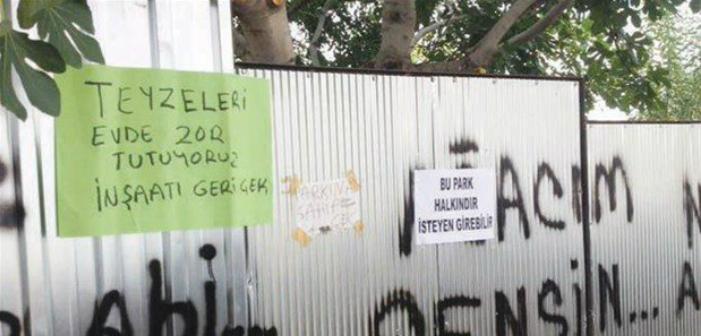 TEYZELERİ
EVDE ZOR
TUTUYORUZ
İNŞAATI GERİ ÇEK
PARKINA
SAHİP
ÇIK
BU PARK
HALKINDIR
İSTEYEN GİREBİLİR
AĞACIM
Abi
DENSİN...